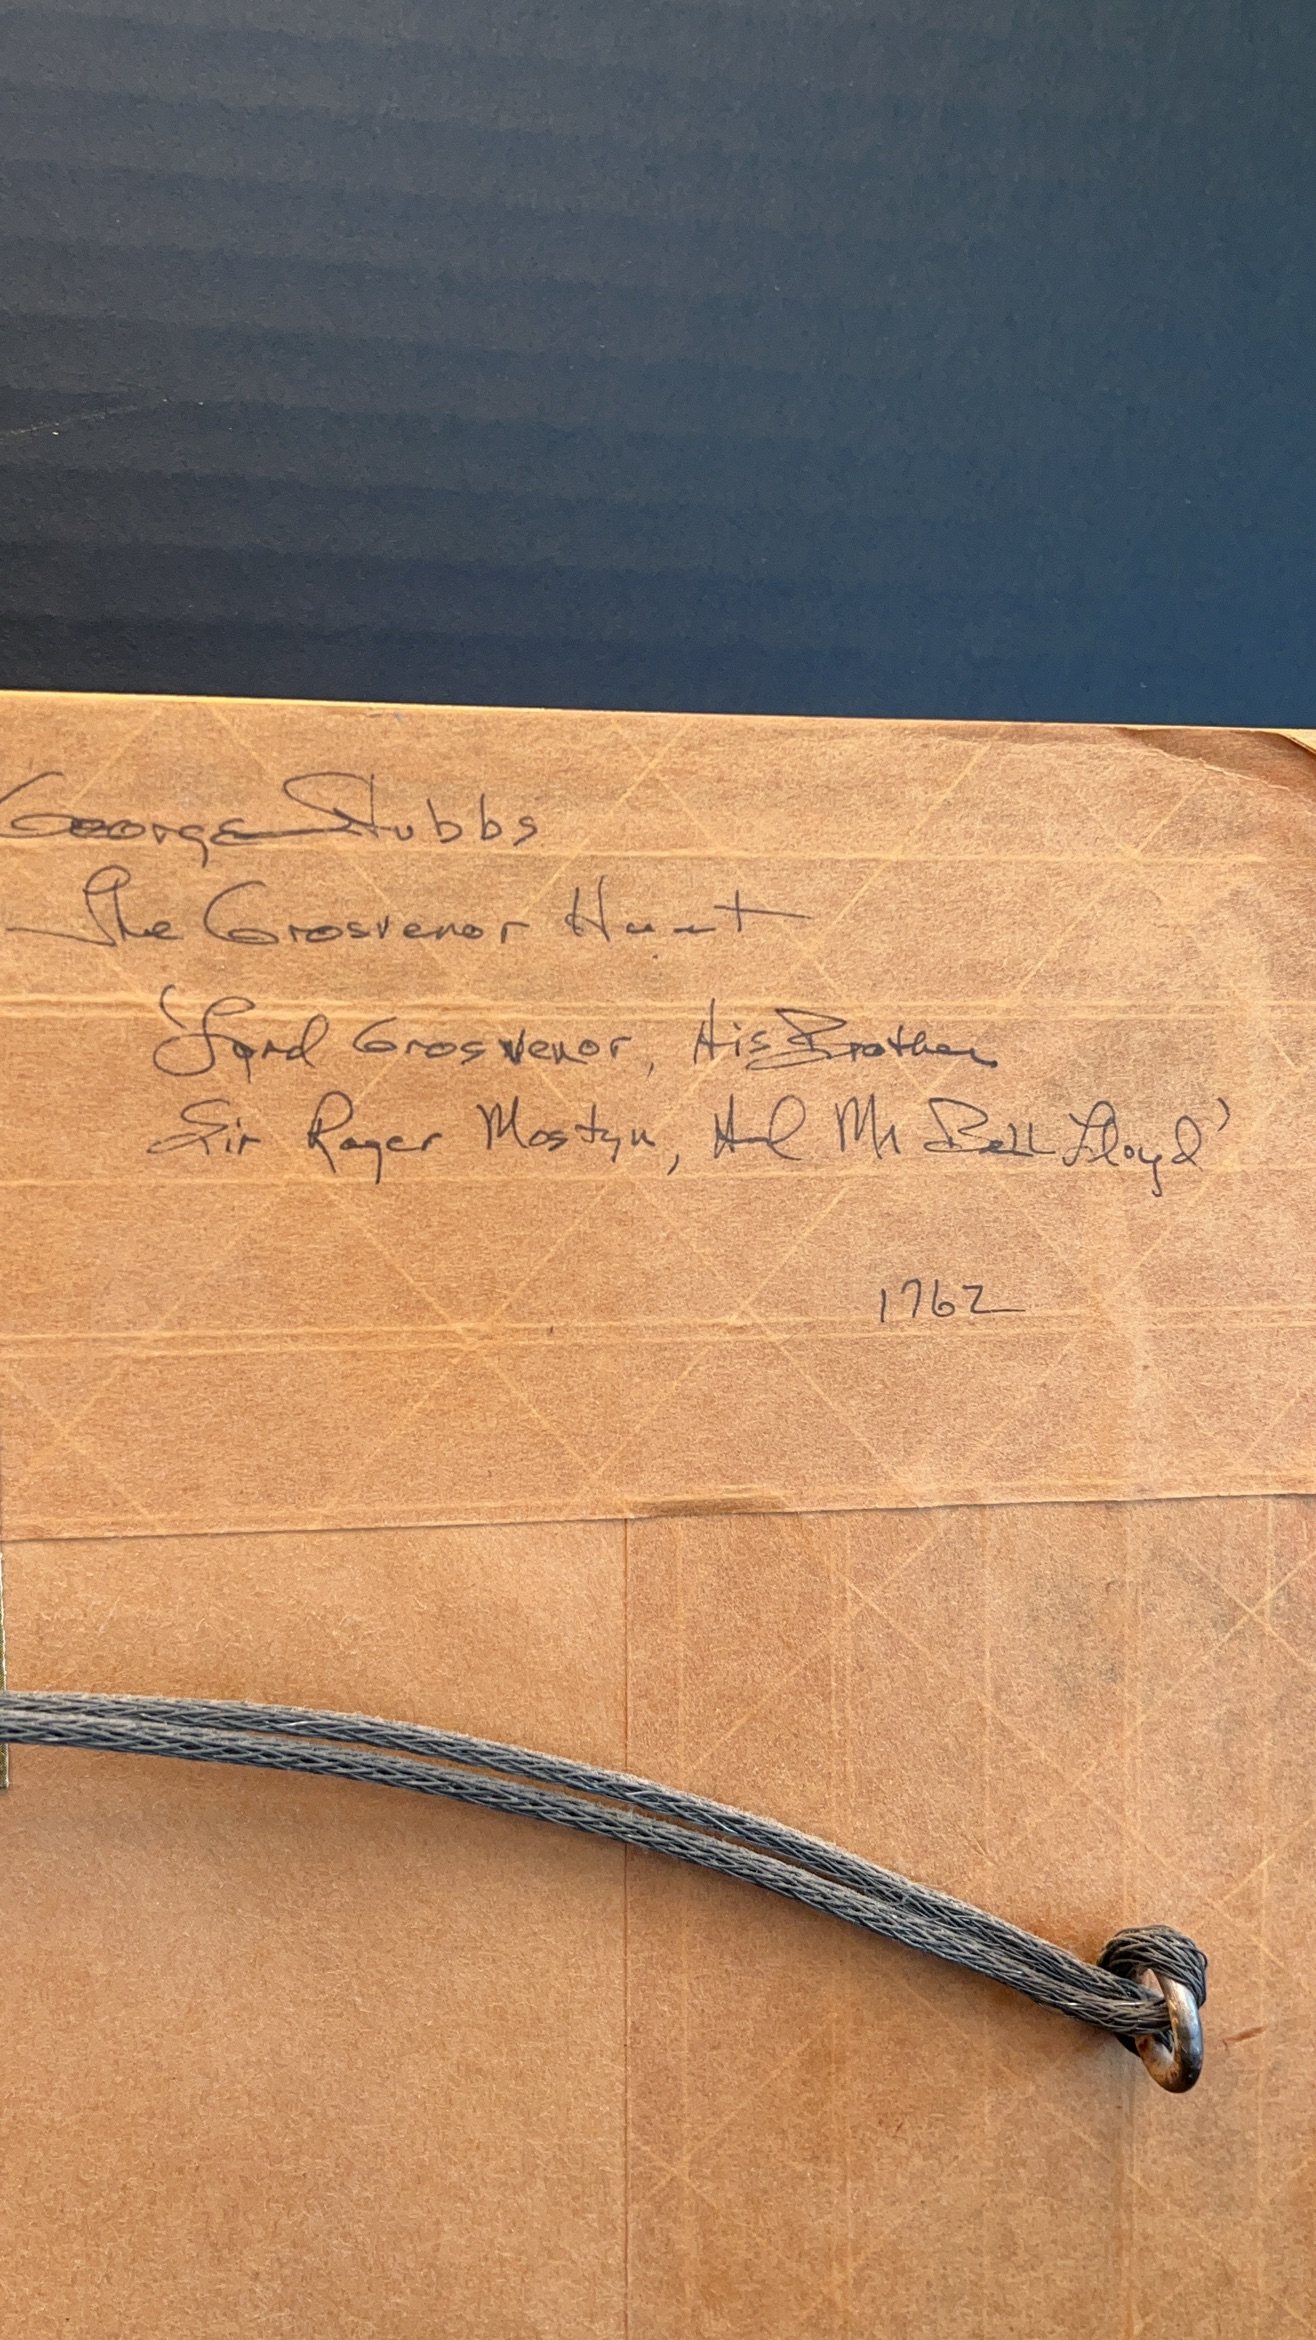 George Stubbs
The Grosvenor Hunt
'Lord Grosvenor, His Brother
Sir Roger Mostyn, And Mr Bell Lloyd'
1762